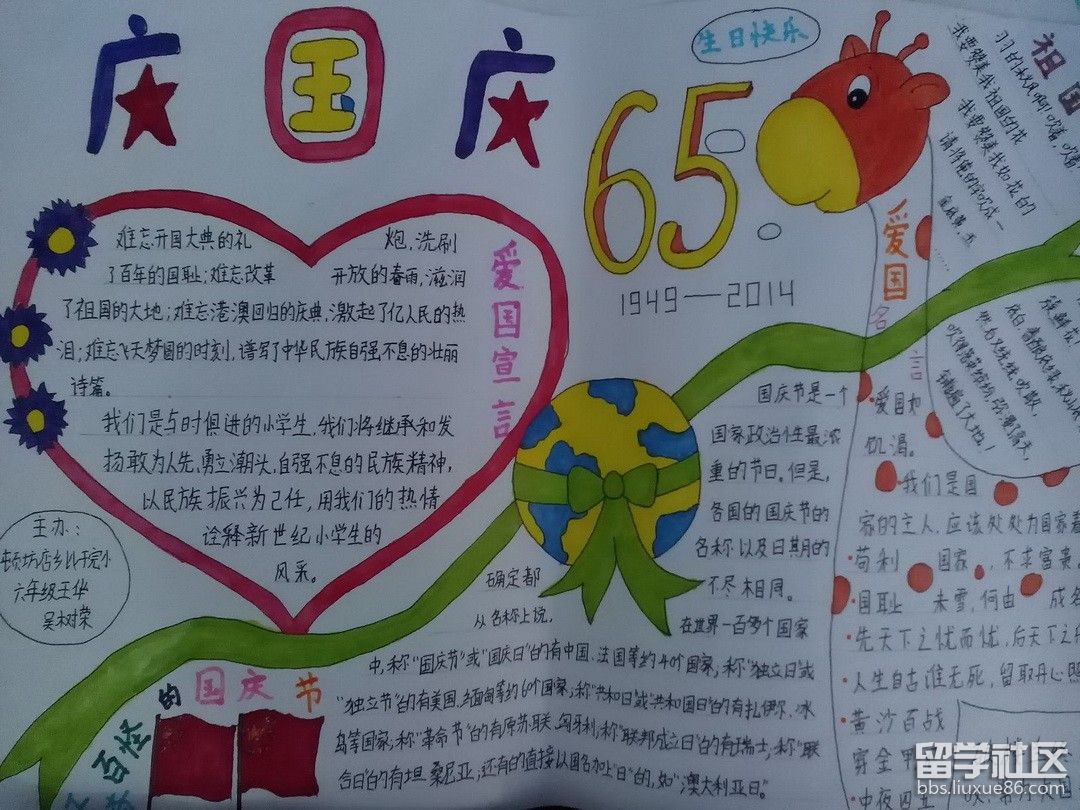 庆国庆
生日快乐
65
1949—2014
爱国宣言
难忘开国大典的礼炮,洗刷
了百年的国耻;难忘改革开放的春雨,滋润
了祖国的大地;难忘港澳回归的庆典,激起了亿人民的热
泪;难忘飞天梦圆的时刻,谱写了中华民族自强不息的壮丽
诗篇。
我们是与时俱进的小学生,我们将继承和发
扬敢为人先,勇立潮头,自强不息的民族精神,
以民族振兴为己任,用我们的热情
诠释新世纪小学生的
风采。
主办:
六年级王华
吴树荣
百怪
的国庆节
国庆节是一个
国家政治性最浓
重的节日。但是,
各国的国庆节的
名称以及日期的
确定都不尽相同。
从名称上说,在世界一百多个国家
中,称“国庆节”或“国庆日”的有中国、法国等约40个国家,称“独立日”或
“独立节”的有美国、缅甸等约60个国家,称“共和日”或“共和国日”的有扎伊尔、冰
岛等国家,称“革命节”的有原苏联、匈牙利,称“联邦成立日”的有瑞士,称“联
合日”的有坦桑尼亚,还有的直接以国名加上“日”的,如“澳大利亚日”。
爱国名言
·爱国如
饥渴。
·我们是国
家的主人,应该处处为国家着
·苟利国家,不求富贵。
·国耻未雪何由成名
·先天下之忧而忧,后天下之
·人生自古谁无死,留取丹心照
·黄沙百战
穿金甲
祖国
我要赞美我祖国的花
我要赞美我如花的
了大地!
留学社区
bbs.liuxue86.com